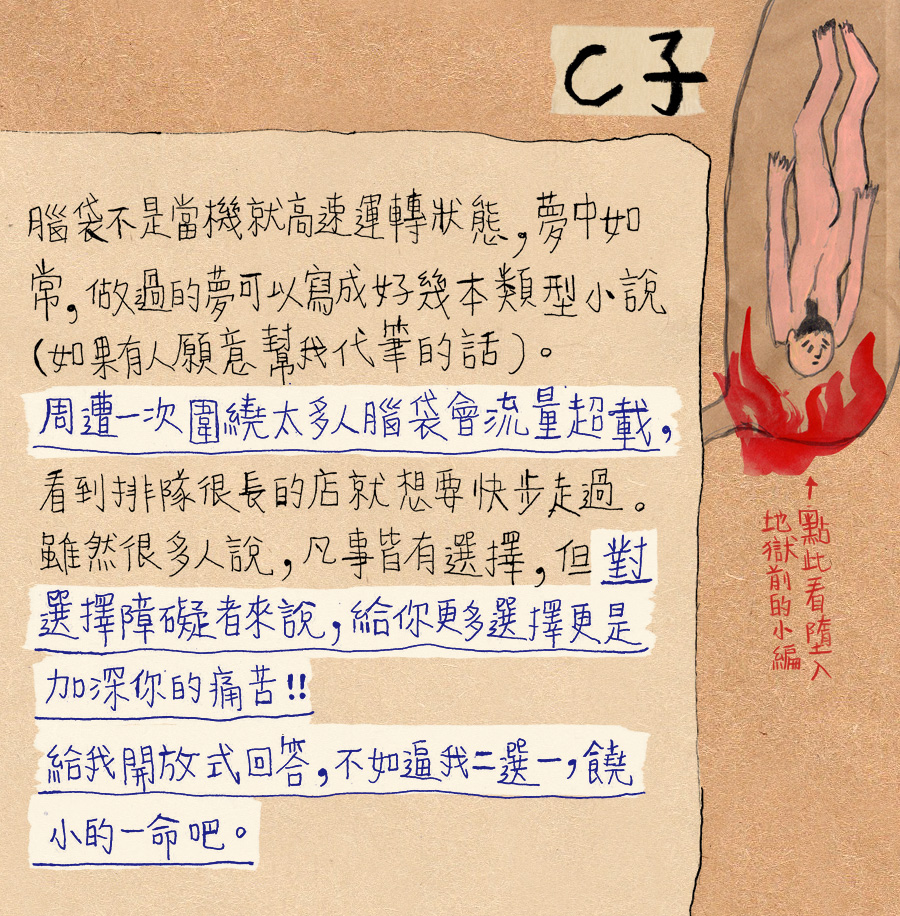 C子
腦袋不是當機就高速運轉狀態,夢中如
常,做過的夢可以寫成好幾本類型小說
(如果有人願意幫我代筆的話)。
周遭一次圍繞太多人腦袋會流量超載,
看到排隊很長的店就想要快步走過。
雖然很多人說,凡事皆有選擇,但對
選擇障礙者來說,給你更多選擇更是
加深你的痛苦!!
給我開放式回答,不如逼我二選一,饒
小的一命吧。
↑點此看墮入
地獄前的小編